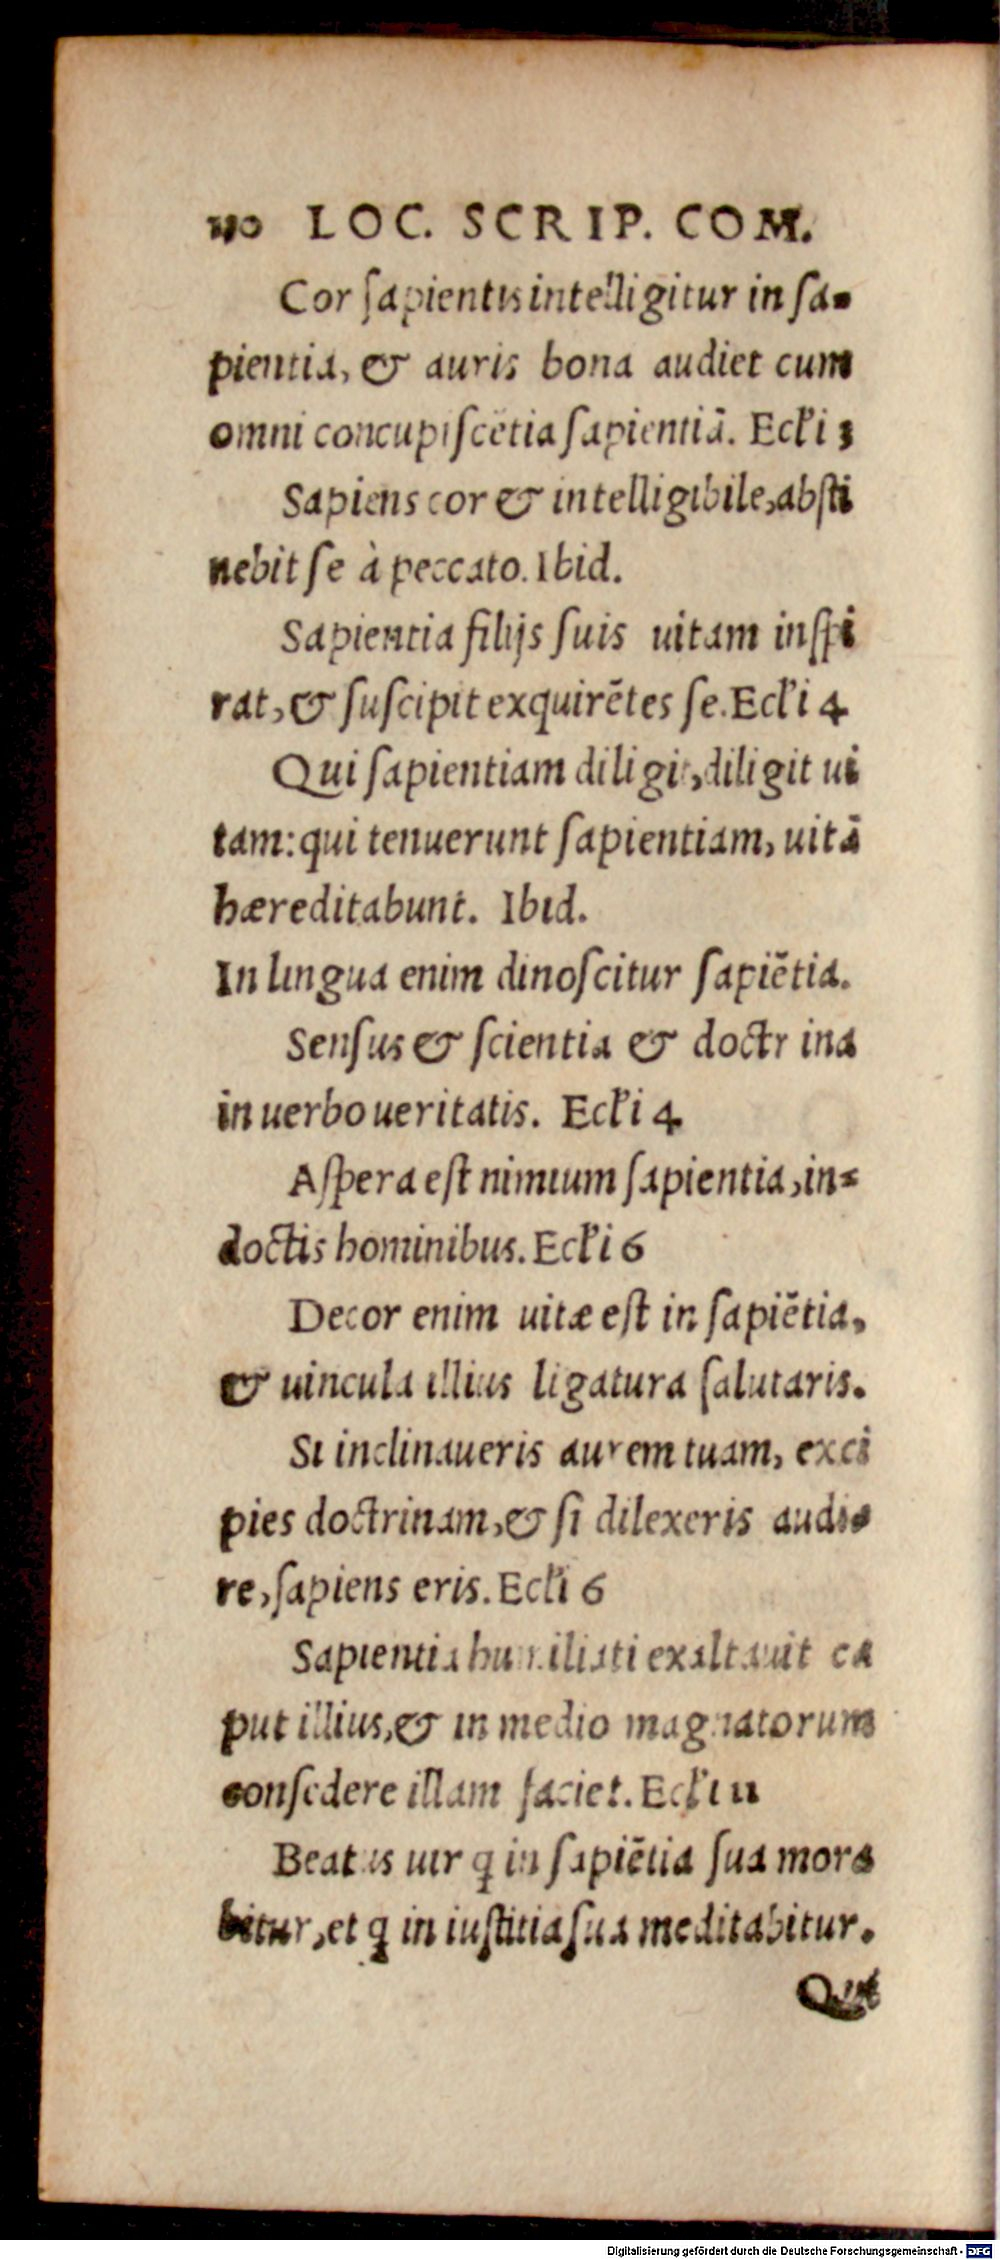 LOC. SCRIP. COM.
Cor ſapientis intelligitur in ſa-
pientia, & auris bona audiet cum
omni concupiſcẽtia ſapientiã. Ecl'i 3
Sapiens cor & intelligibile, abſti
nebit ſe à peccato. Ibid.
Sapientia filijs ſuis uitam inſpi
rat, & ſuſcipit exquirẽtes ſe. Ecl'i 4
Qui ſapientiam diligit, diligit ui
tam: qui tenuerunt ſapientiam, uitã
hæreditabunt. Ibid.
In lingua enim dinoſcitur ſapiẽtia.
Senſus & ſcientia & doctrina
in uerbo ueritatis. Ecl'i 4
Aſpera eſt nimium ſapientia, in-
doctis hominibus. Ecl'i 6
Decor enim uitæ eſt in ſapiẽtia,
& uincula illius ligatura ſalutaris.
Si inclinaueris aurem tuam, exci
pies doctrinam, & ſi dilexeris audi-
re, ſapiens eris. Ecl'i 6
Sapientia humiliati exaltauit ca
put illius, & in medio magnatorum
conſedere illam faciet. Ecl'i 11
Beatus uir q in ſapiẽtia ſua mora
bitur, et q in iuſtitia ſua meditabitur.
Qui
Digitalisierung gefördert durch die Deutsche Forschungsgemeinschaft - DFG